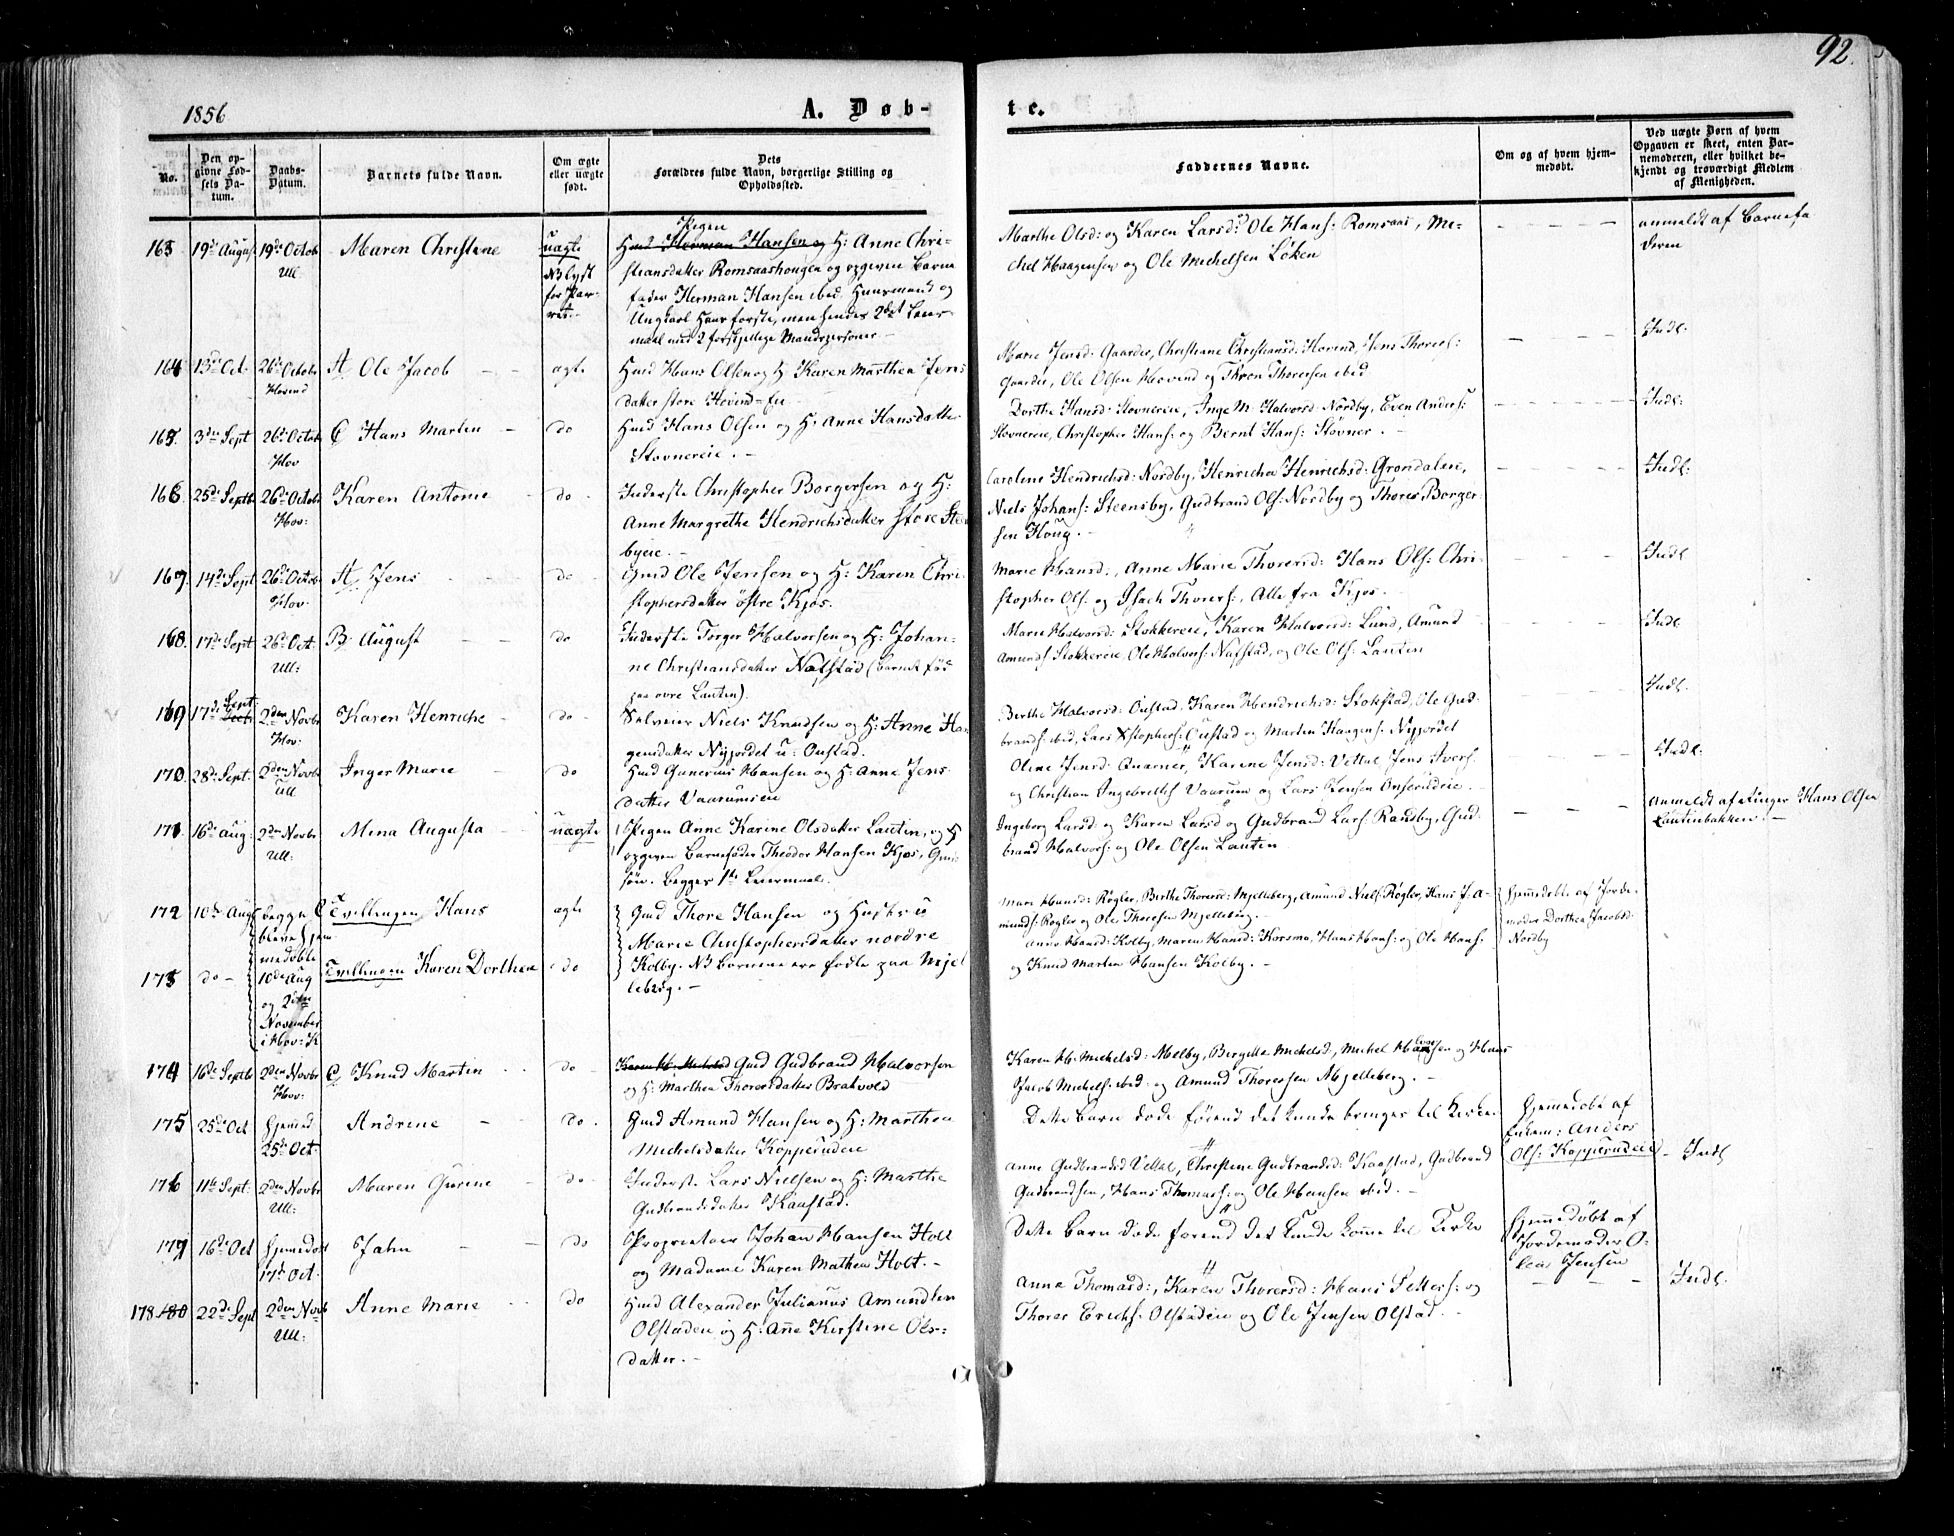 92.
1856
A. Døb-
te.
No.
Den op-
givne Fød-
sels Da-
tum.
Daabs-
Datum.
Barnets fulde Navn.
Om ægte
eller uægte
født.
Dets
Forældres fulde Navn, borgerlige Stilling og
Opholdssted.
Faddernes Navne.
Om og af hvem hjem-
medøbt.
Ved uægte Børn af hvem
Opgaven er skeet, enten Bar-
nemoderen, eller hvilket be-
kjendt og troværdigt Medlem
af Menigheden.
163 19de August 19de Octob Ull Maren Christine uægte
NB lyst
for Par-
ret.
Pigen
Hmd Herman Hansen og H: Anne Chri-
stiansdatter Romsaashougen og opgiven Barne
fader Herman Hansen ibid. Huusmand og
Ungkarl Hans første, men hendes 2det Leier-
maal med 2 forskjellige Mandspersoner
Marthe Olsd: og Karen Larsd: Ole Hans: Romsaas, Mi-
chel Haagensen og Ole Michelsen Løken
anmeldt af Barnefa
deren
164 13de Oct. 26de Octobr Hovind A. Ole Jacob ægte
Hmd Hans Olsen og H: Karen Marthea Jens
datter store Hovind-Eie
Marie Jensd: Gaarder, Christiane Christiansd: Hovind, Jens Thores:
Gaarder, Ole Olsen Hovind og Thron Thoresen ibid
Indl:
165. 3die Sept 26de Octob Hov C. Hans Martin do
Hmd Hans Olsen og H: Anne Hansdatter
Stovnereie.
Dorthe Hansd: Stovnereie, Inge M. Halvorsd: Nordby, Even Anders:
Stovnereie, Christopher Hans: og Bernt Hans: Støvner.
Indl:
166. 25de Septb 26de Octob Hov: Karen Antonie do
Inderste Christopher Borgersen og H:
Anne Margrethe Hendrichsdatter store Ste
byeie.
Caroline Hendrichsd: Nordby, Henricha Henrichsd: Grøndalen,
Niels Johans: Steensby, Gudbrand Ols: Nordby og Thores Borger
sen Houg.
Indl:
167. 14de Sept 26de Octob Hov: A. Jens do
Gmd Ole Jensen og H: Karen Chri
stophersdatter østre Kjos.
Marie Hansd:, Anne Marie Thorersd: Hans Ols: Chri-
stopher Ols: og Isach Thorers:, Alle fra Kjos.
Indl
168. 17de Sept 26de Oct. Ull: B. August do
Inderste Torger Halvorsen og H: Johan-
ne Christiansdatter Nafstad (barnet født
paa øvre Lautin).
Marie Halvorsd: Stokkereie, Karen Halvorsd: Lund, Amund
Amunds: Stokkereie, Ole Halvors: Nafstad, og Ole Ols: Lautin
Indl
169 17de Sept. 2den Novbr Hov: Karen Henriche do
Selveier Niels Knudsen og H: Anne Haa
gensdatter Nyjordet u: Oustad.
Berthe Halvorsd: Oustad, Karen Hendrichsd: Stokstad, Ole Gud-
brands: ibid, Lars Xstophers: Oustad og Martin Haagens: Nyjordet
Indl.
170. 28de Sept. 2den Novbr Ull Inger Marie do
Hmd Gunerius Hansen og H: Anne Jens
datter Vaarumseie
Oline Jensd: Quarner, Karine Jensd: Vettal Jens Ivers:
og Christian Ingebretsd Vaarum og Lars Jensen Onserudeie.
Indl:
171. 16de Aug: 2den Novbr Ull: Mina Augusta uægte
Pigen Anne Karine Olsdatter Lautin, og
opgiven Barnefader Theodor Hansen Kjos, Gmd
søn. Begges 1ste Leiermaal.
Ingeborg Larsd: og Karen Larsd og Gudbrand Lars: Randby, Gud-
brand Halvors: og Ole Olsen Lautin
anmeldt af Hans Olsen
Lautinbakken.
172 10de Aug begge C Tvillingen Hans ægte
blive hjem
medøbte
10de Aug
og 2den
November
i Hov: K
Gmd Thore Hansen og Hustru
Marie Christophersdatter nordre
Kolby. NB Børnene ere fødte paa Mjel
leberg.
Mari Hansd: Røgler, Berthe Thoresd: Mjelleberg, Amund Niels: Røgler, Hans J. A-
munds: Røgler og Ole Thoresen Mjelleberg.
Anne Hansd: Kolby, Maren Hansd: Korsmo, Hans Hans: og Ole Hans:
og Knud Martin Hansen Kolby.
Hjemmedøbte af Jorde-
moder Dorthea Jacobsd:
Nordby
173 do Tvillingen Karen Dorthea do
174 16de Septb 2den Novbr Hov: C. Knud Martin do
Gmd Gudbrand Halvorsen
og H: Marthea Thoresdatter Brakvold
Karen M. Michelsd: Melby, Bergitte Michelsd:, Michel Hansen og Hans
Jacob Michels: ibid: og Amund Thoresen Mjelleberg.
175 25de Oct Hjemmed 25de Oct. Andrine do.
Gmd Amund Hansen og H: Marthea
Michelsdatter Kopperudeie
Dette Barn døde førend det kunde bringes til Kirke.
Hjemmedøbt af
Enkem: Anders
Ols: Kopperudeie
176 11te Sept. 2den Novbr Ull: Maren Gurine do
Inderst. Lars Nielsen og H: Marthe
Gudbrandsdatter Kaustad.
Anne Gudbrandsd Vettal, Christine Gudbrandsd: Kaustad, Gudbrand
Gudbrandsen, Hans Thomass: og Ole Hansen ibid.
Indl
177 16de Oct Hjemedøbt 17de Oct. Jahn do
Proprietair Johan Hansen Holt
og Madame Karen Mathea Holt.
Dette Barn døde førend det kunde komme til Kirke
Hjemmedøbt af
Jordemoder O-
lea Jensen
178. 22de Sept 2den Novb Ull: Anne Marie do
Hmd Alexander Julianus Amundsen
Olstadeie og H: Anne Kirstine Ols-
datter.
Anne Thomasd:, Karen Thorersd: Hans Petters: og
Thorer Erichs: Olstadeie og Ole Jensen Olstad.
Indl.